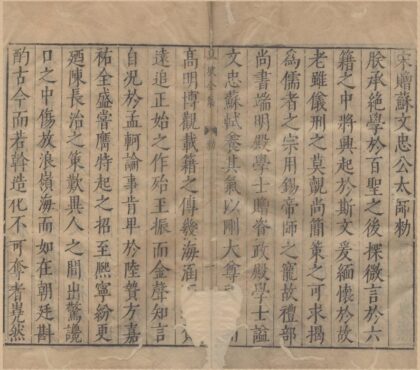 宋贈蘇文忠公太師勅
朕承絕學於百聖之後探微言於六
籍之中將興起於斯文爰緬懷於故
老雖儀刑之莫覿尚簡策之可求揭
爲儒者之宗用錫帝師之寵故禮部
尚書端明殿學士贈資政殿學士諡
文忠蘇軾養其氣以剛大尊
全集
高明博觀載籍之傳幾海涵
遠追正始之作殆玉振而金聲知言
自况於孟軻論事肯卑於陸贄方嘉
祐全盛嘗膺特起之招至熙寧紛更
廼陳長治之策歎異人之間出驚讒
口之中傷放浪嶺海而如在朝廷斟
酌古今而若斡造化不可奪者嶤然